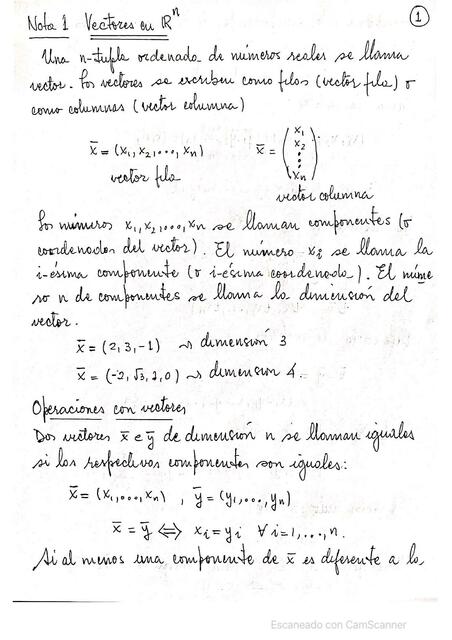 Nota 1 Vectores en ℝⁿ
1
Una n-tupla ordenada de números reales se llama
vector. Los vectores se escriben como filas (vector fila) o
como columnas (vector columna)
x̄ = (x₁, x₂, ..., xₙ)    x̄ = (x₁ x₂ ⋮ xₙ)
vector fila    vector columna
Los números x₁, x₂, ..., xₙ se llaman componentes (o
coordenadas del vector). El número xᵢ se llama la
i-ésima componente (o i-ésima coordenada). El núme
ro n de componentes se llama la dimensión del
vector.
x̄ = (2, 3, -1) ⇝ dimensión 3
x̄ = (-2, √3, 2, 0) ⇝ dimensión 4.
Operaciones con vectores
Dos vectores x̄ e ȳ de dimensión n se llaman iguales
si las respectivas componentes son iguales:
x̄ = (x₁, ..., xₙ) , ȳ = (y₁, ..., yₙ)
x̄ = ȳ ⟺ xᵢ = yᵢ ∀ i = 1, ..., n.
Si al menos una componente de x̄ es diferente a la
Escaneado con CamScanner